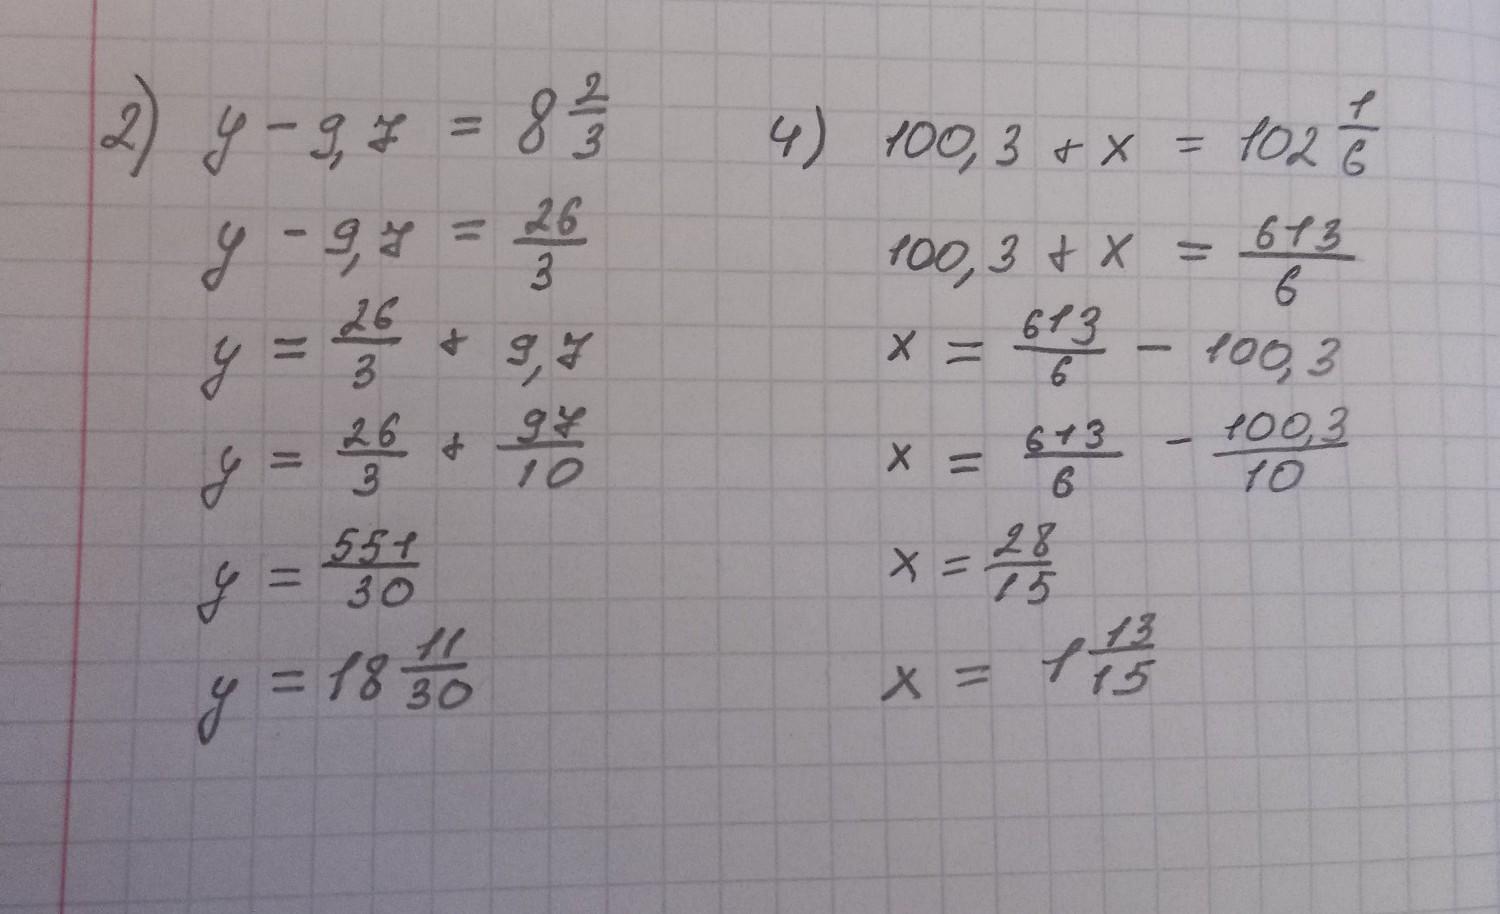 2) y - 9,7 = 8 2/3
y - 9,7 = 26/3
y = 26/3 + 9,7
y = 26/3 + 97/10
y = 551/30
y = 18 11/30
4) 100,3 + x = 102 1/6
100,3 + x = 613/6
x = 613/6 - 100,3
x = 613/6 - 100,3/10
x = 28/15
x = 1 13/15